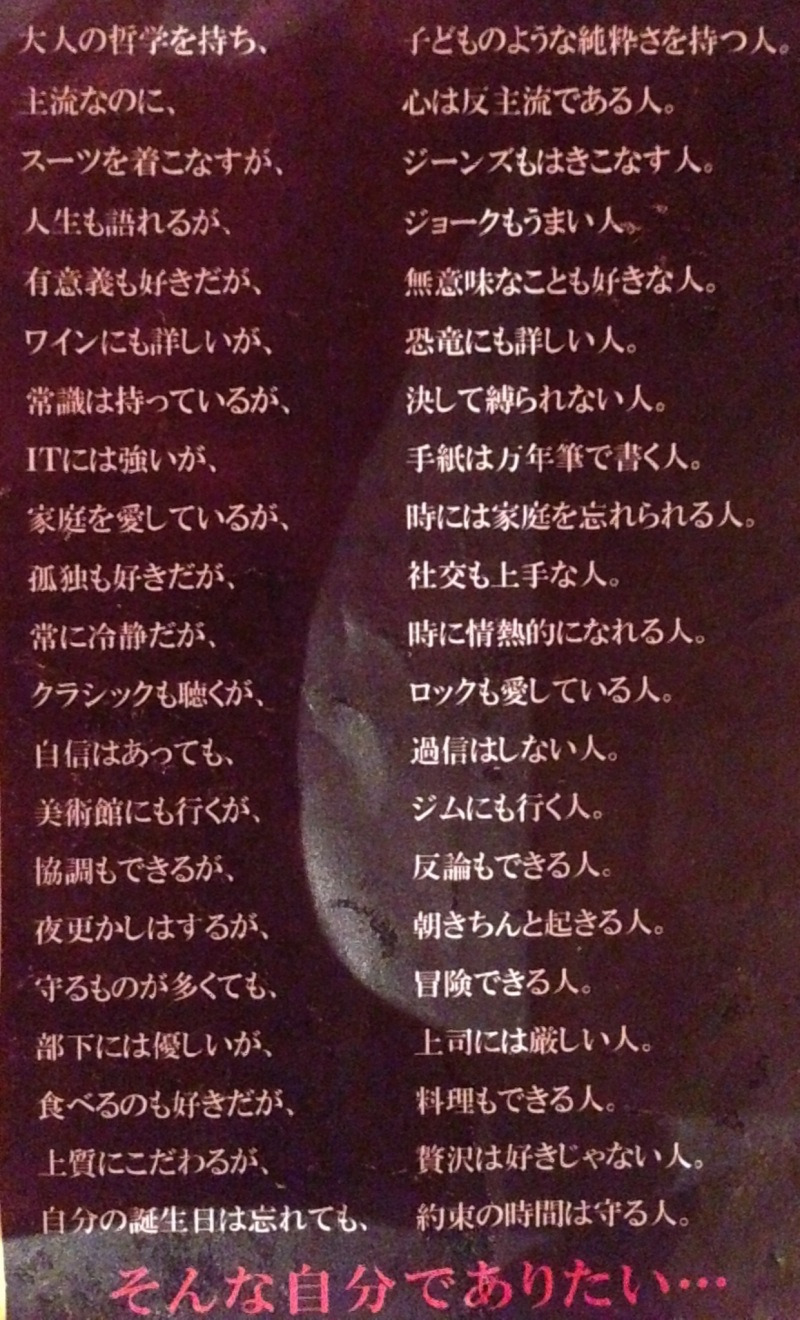 大人の哲学を持ち、 子どものような純粋さを持つ人。
主流なのに、 心は反主流である人。
スーツを着こなすが、 ジーンズもはきこなす人。
人生も語れるが、 ジョークもうまい人。
有意義も好きだが、 無意味なことも好きな人。
ワインにも詳しいが、 恐竜にも詳しい人。
常識は持っているが、 決して縛られない人。
ITには強いが、 手紙は万年筆で書く人。
家庭を愛しているが、 時には家庭を忘れられる人。
孤独も好きだが、 社交も上手な人。
常に冷静だが、 時に情熱的になれる人。
クラシックも聴くが、 ロックも愛している人。
自信はあっても、 過信はしない人。
美術館にも行くが、 ジムにも行く人。
協調もできるが、 反論もできる人。
夜更かしはするが、 朝きちんと起きる人。
守るものが多くても、 冒険できる人。
部下には優しいが、 上司には厳しい人。
食べるのも好きだが、 料理もできる人。
上質にこだわるが、 贅沢は好きじゃない人。
自分の誕生日は忘れても、 約束の時間は守る人。
そんな自分でありたい…